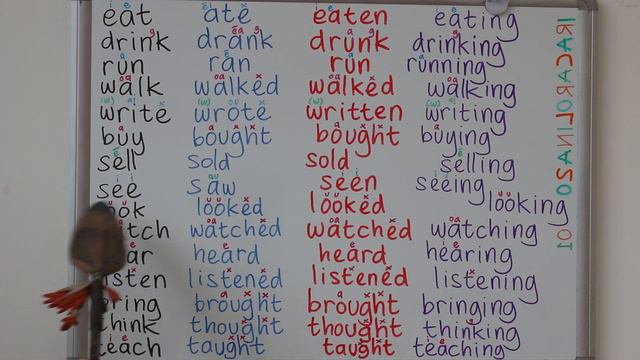 eat ate eaten eating
drink drank drunk drinking
run ran run running
walk walked walked walking
write wrote written writing
buy bought bought buying
sell sold sold selling
see saw seen seeing
ook looked looked looking
tch watched watched watching
ar heard heard hearing
sten listened listened listening
bring brought brought bringing
think thought thought thinking
teach taught taught teaching
IRACAROLINA2001